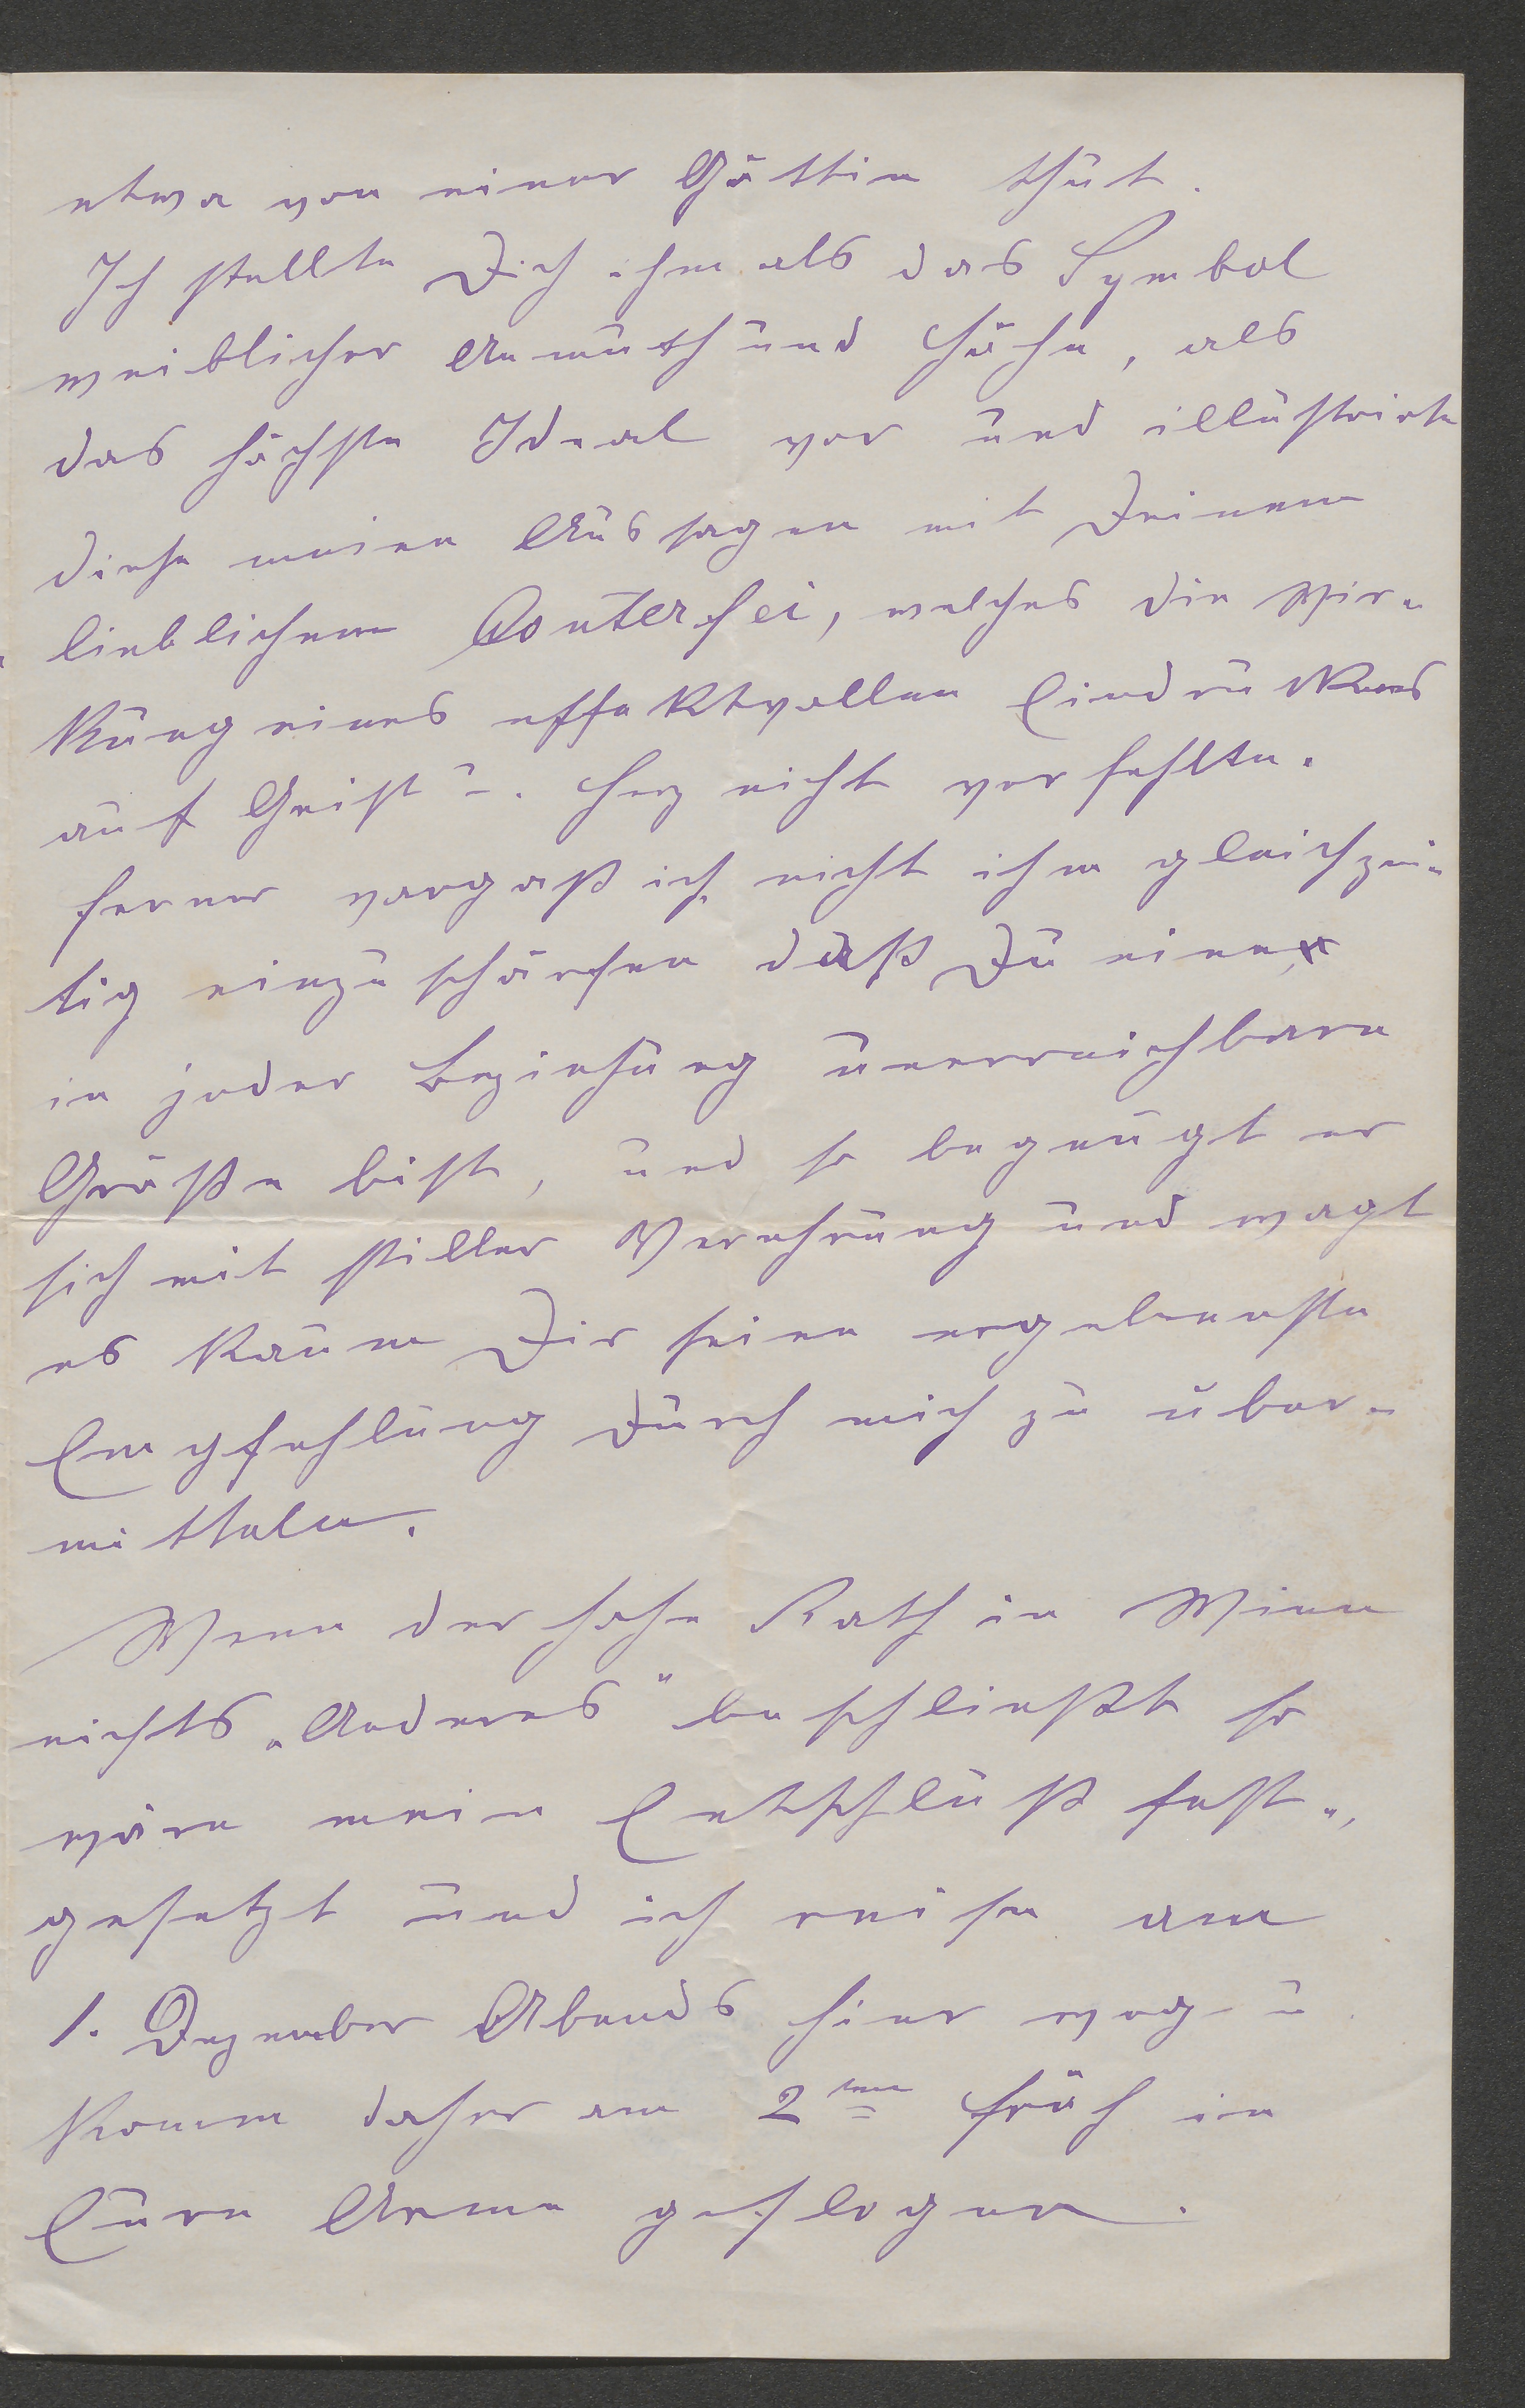 etwa von einer Göttin thut.
Ich stellte Dich ihm als das Symbol
weiblicher Anmuth und Höhe, als
das höchste Ideal vor und illustrirte
diese meine Aussagen mit Deinem
lieblichem Conterfei, welches die Wir-
kung eines effektvollen Eindruckes
auf Geist u. Herz nicht verfehlte.
Ferner vergaß ich nicht ihm gleichzei-
tig einzuschärfen daß Du eine
in jeder Beziehung unerreichbare
Größe bist, und so begnügt er
sich mit stiller Verehrung und wagt
es kaum Dir seine ergebenste
Empfehlung durch mich zu über-
mitteln.
Wenn der hohe Rath in Wien
nichts „Anderes" beschließt so
wäre mein Entschluß fest-
gesetzt und ich reise am
1. Dezember Abends hier weg u
komm daher am 2ten früh in
Eure Arme geflogen.